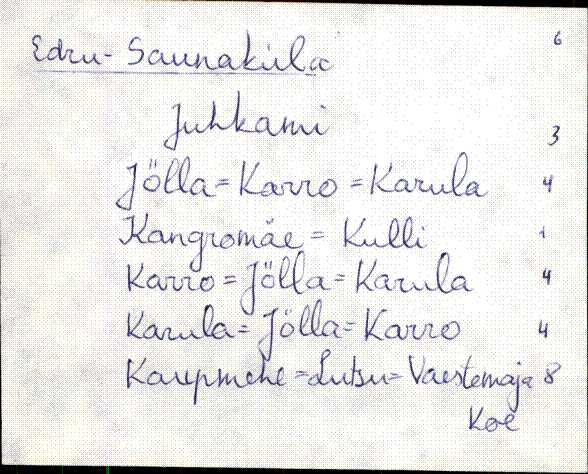 Edru-Saunaküla 6
Juhkami 3
Jölla = Karro = Karula 4
Kangromäe = Kulli 1
Karro = Jölla = Karula 4
Karula = Jölla = Karro 4
Kaupmehe = Lutsu = Vaestemaja 8
Koe